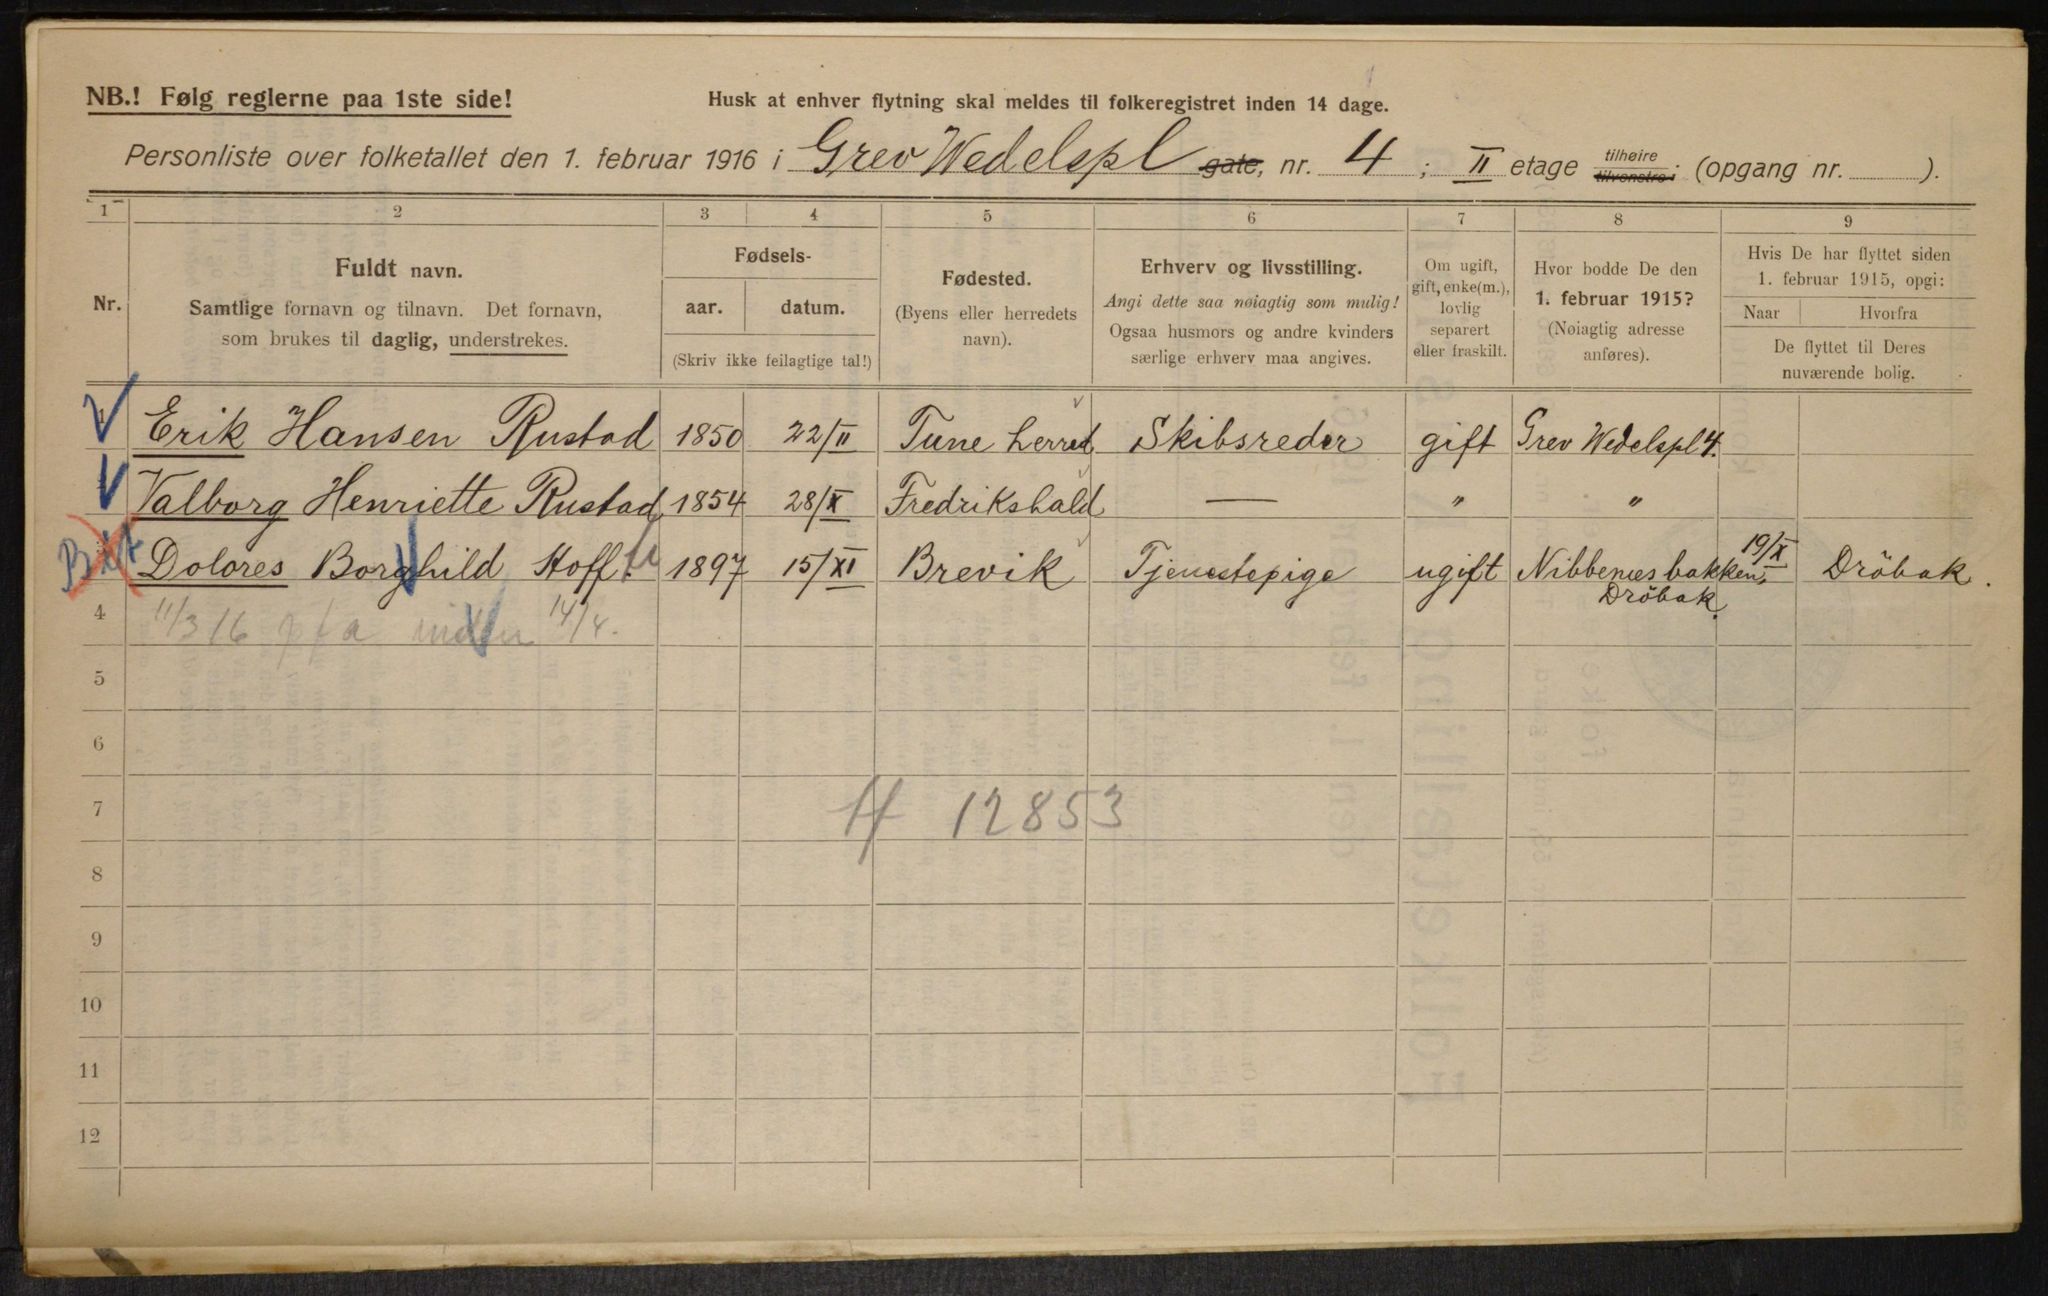 NB.! Følg reglerne paa 1ste side!
Husk at enhver flytning skal meldes til folkeregistret inden 14 dage.
Personliste over folketallet den 1. februar 1916 i Grev Wedelspl gate, nr. 4 ; II etage tilhøire tilvenstre i (opgang nr. ).
1 2 3 4 5 6 7 8 9
Nr.
Fuldt navn.
Samtlige fornavn og tilnavn. Det fornavn,
som brukes til daglig, understrekes.
Fødsels-
aar. datum.
(Skriv ikke feilagtige tal!)
Fødested.
(Byens eller herredets
navn).
Erhverv og livsstilling.
Angi dette saa nøiagtig som mulig!
Ogsaa husmors og andre kvinders
særlige erhverv maa angives.
Om ugift,
gift, enke(m.),
lovlig
separert
eller fraskilt.
Hvor bodde De den
1. februar 1915?
(Nøiagtig adresse
anføres).
Hvis De har flyttet siden
1. februar 1915, opgi:
Naar Hvorfra
De flyttet til Deres
nuværende bolig.
Erik Hansen Rustad 1850 22/II Tune herred Skibsreder gift Grev Wedelspl 4.
Valborg Henriette Rustad 1854 28/X Fredrikshald — " "
Dolores Borghild Hoff. 1897 15/XI Brevik Tjenestepige ugift Nibbenesbakken, Dröbak. 19/X Dröbak.
4 11/3 16 14/4.
5
6
7
H 12853
8
9
10
11
12